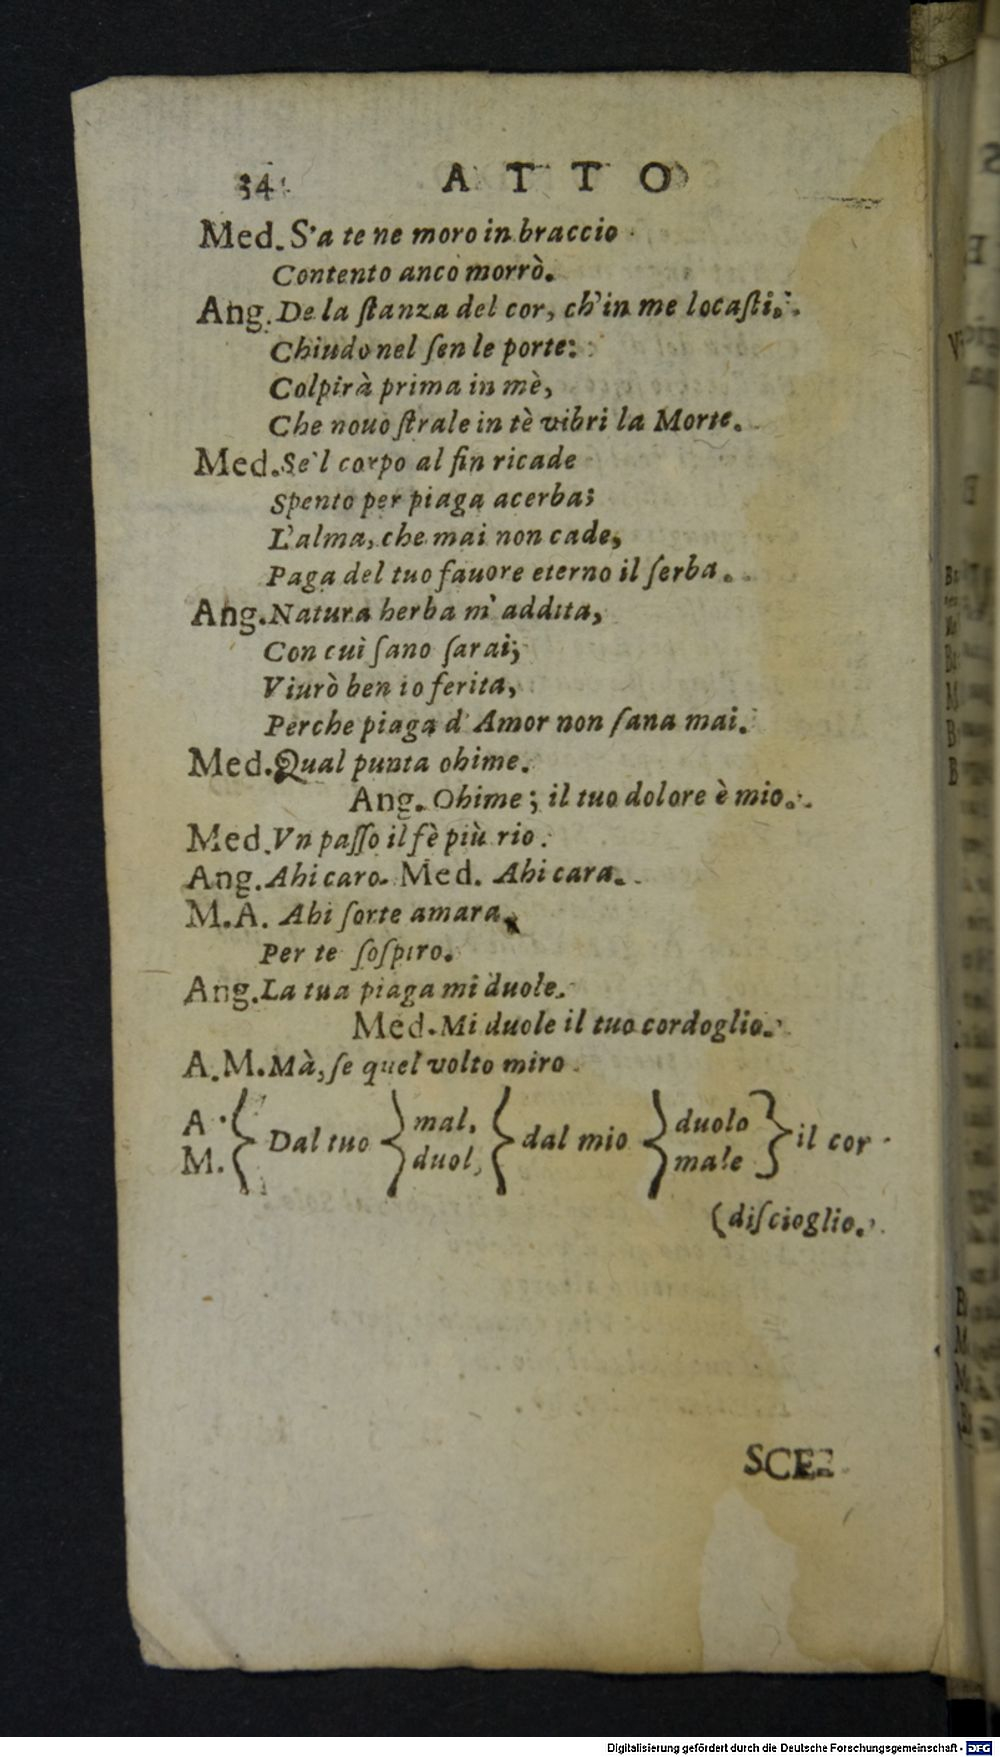 34
ATTO
Med. S'a te ne moro in braccio
Contento anco morrò.
Ang. De la ſtanza del cor, ch'in me locaſti,
Chiudo nel ſen le porte:
Colpirà prima in mè,
Che nouo ſtrale in tè vibri la Morte.
Med. Se'l corpo al fin ricade
Spento per piaga acerba;
L'alma, che mai non cade,
Paga del tuo fauore eterno il ſerba.
Ang. Natura herba m'addita,
Con cui ſano ſarai;
Viurò ben io ferita,
Perche piaga d'Amor non ſana mai.
Med. Qual punta ohime.
Ang. Ohime; il tuo dolore è mio.
Med. Vn paſſo il fè più rio.
Ang. Ahi caro. Med. Ahi cara.
M.A. Ahi ſorte amara,
Per te ſoſpiro.
Ang. La tua piaga mi duole.
Med. Mi duole il tuo cordoglio.
A.M. Mà, ſe quel volto miro
A. { Dal tuo { mal, { dal mio { duolo } il cor
M. duol, male
(diſcioglio.
SCE-
Digitalisierung gefördert durch die Deutsche Forschungsgemeinschaft - DFG